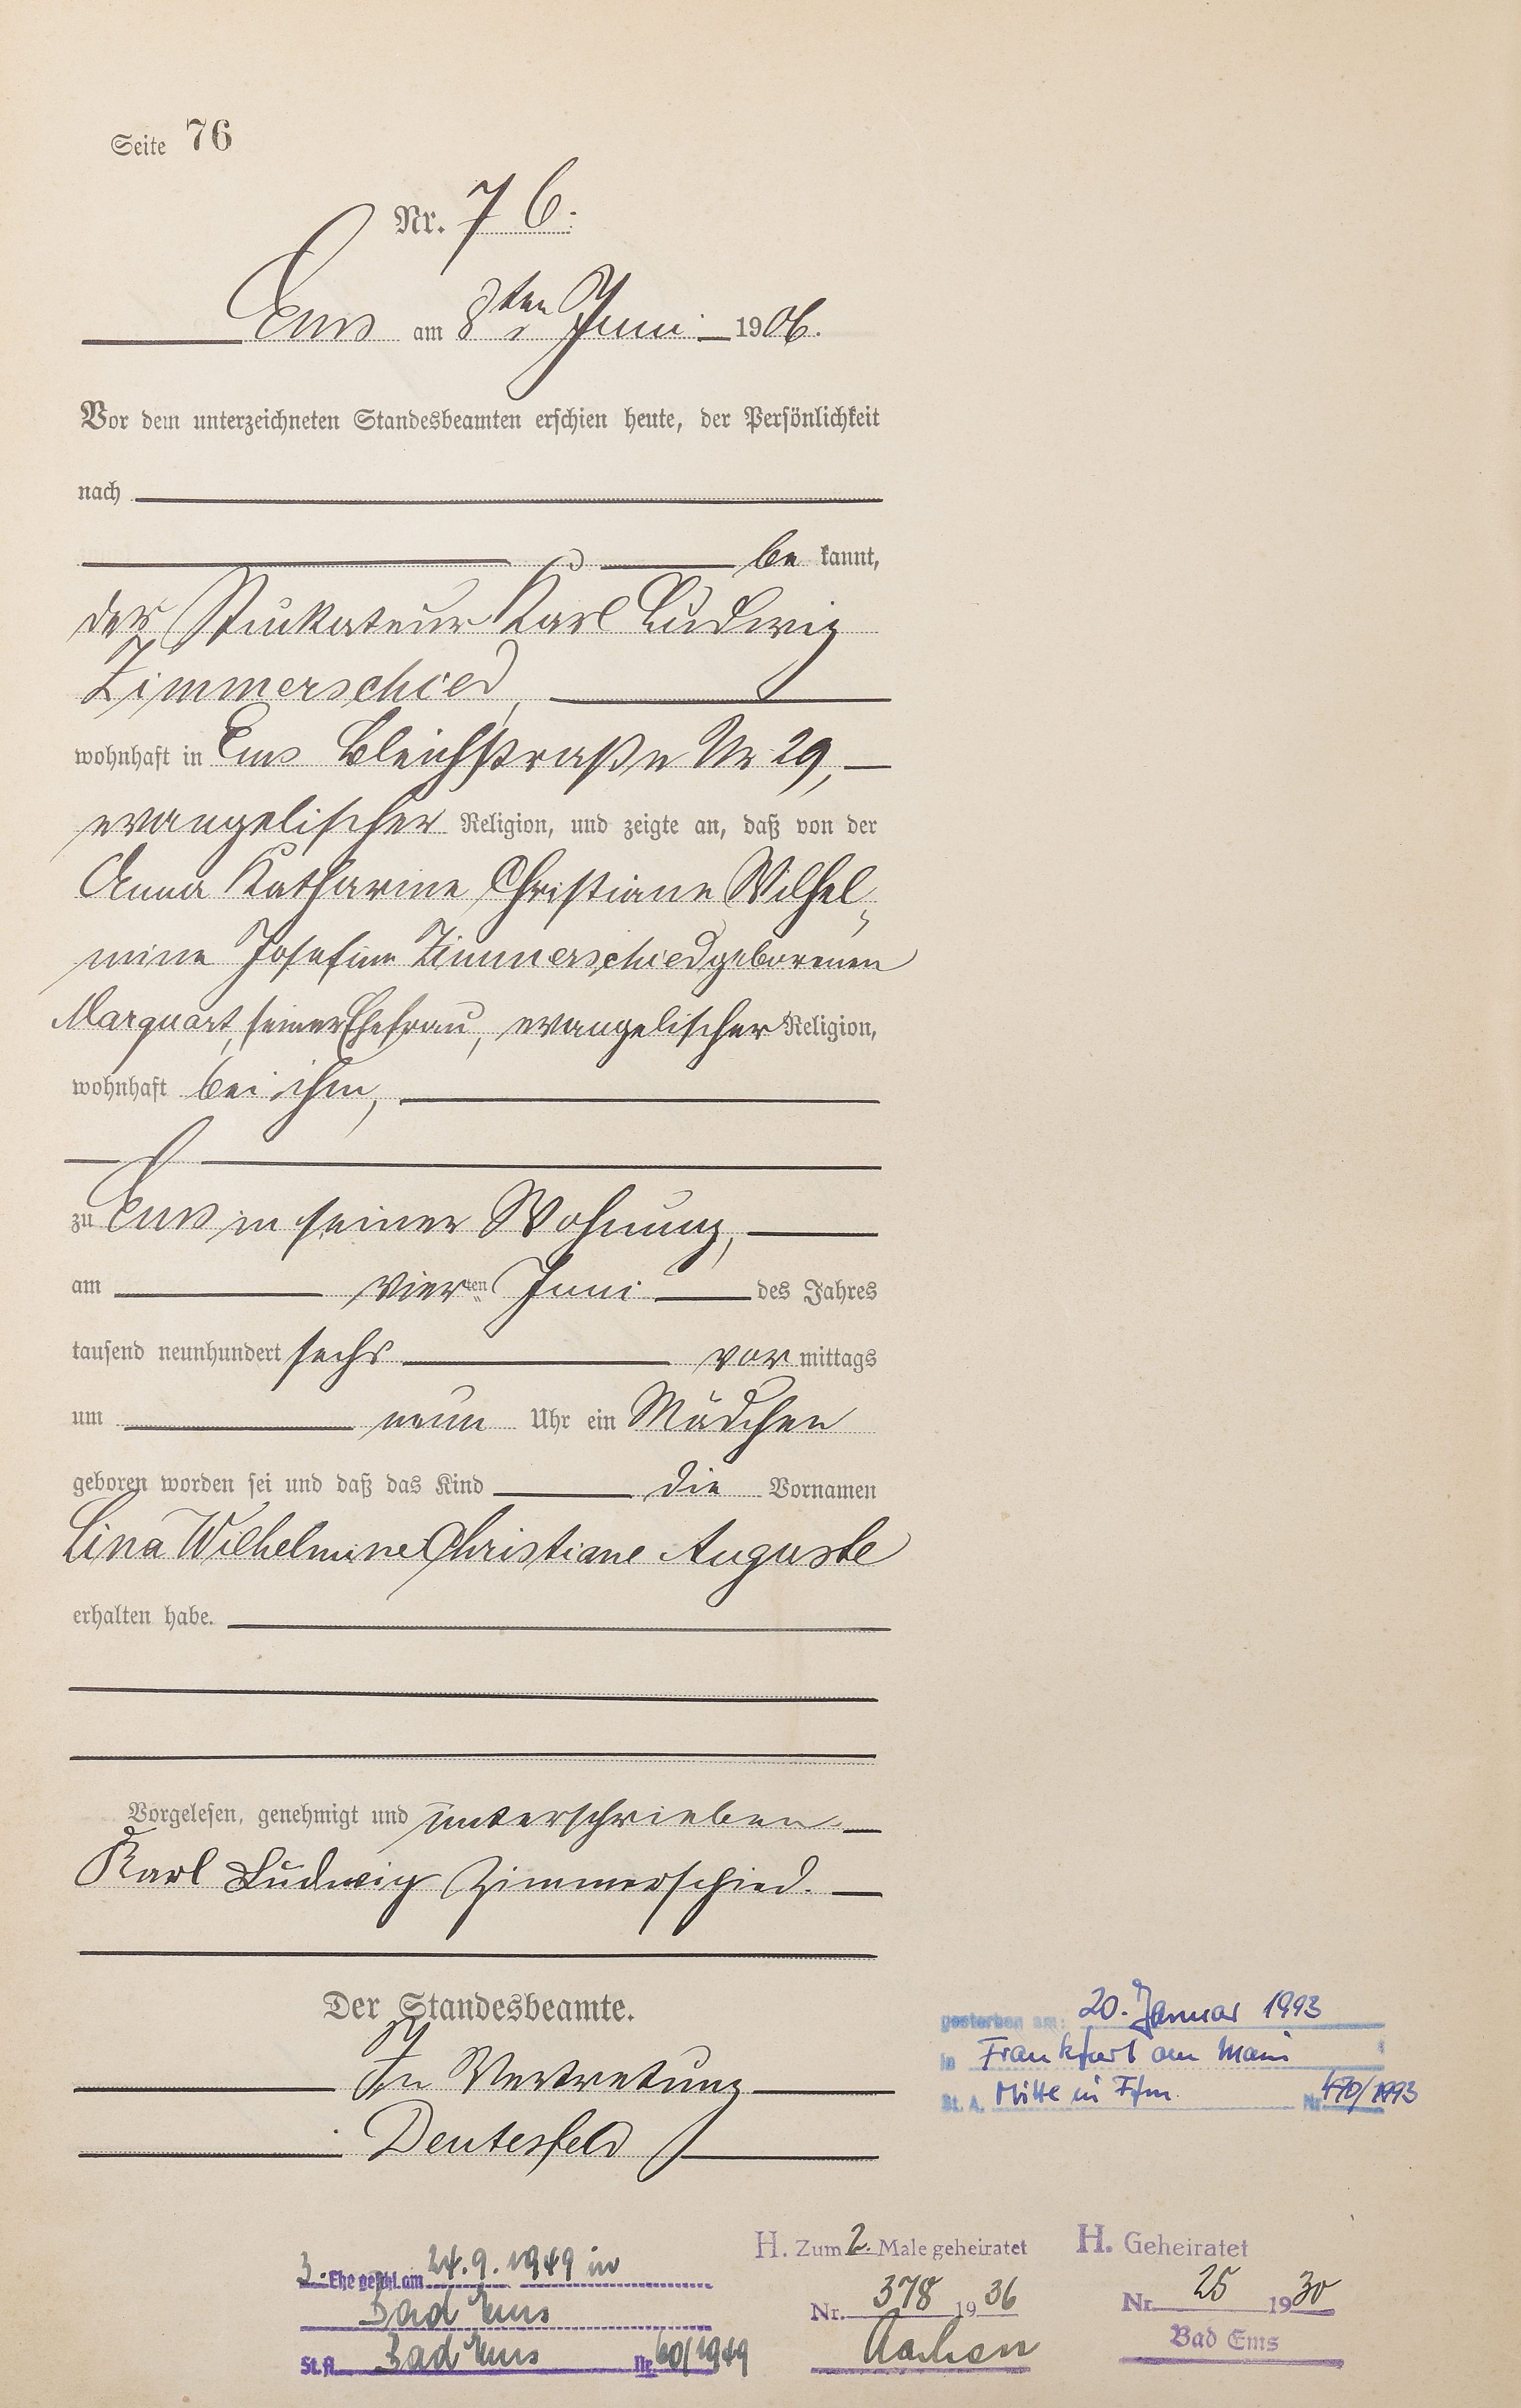 Seite 76
Nr. 76.
Ems am 8ten Juni 1906.
Vor dem unterzeichneten Standesbeamten erschien heute, der Persönlichkeit
nach
be kannt,
der Stukateur Karl Ludwig
Zimmerschied,
wohnhaft in Ems Bleichstraße Nr 29,
evangelischer Religion, und zeigte an, daß von der
Anna Katharine Christiane Wilhel-
mine Josefine Zimmerschied geborenen
Marquart, seiner Ehefrau, evangelischer Religion,
wohnhaft bei ihm,
zu Ems in seiner Wohnung,
am vierten Juni des Jahres
tausend neunhundert sechs vor mittags
um neun Uhr ein Mädchen
geboren worden sei und daß das Kind die Vornamen
Lina Wilhelmine Christiane Auguste
erhalten habe.
Vorgelesen, genehmigt und unterschrieben
Karl Ludwig Zimmerschied.
Der Standesbeamte.
In Vertretung
Deutesfeld
gestorben am: 20. Januar 1993
in Frankfurt am Main
St. A. Mitte in Ffm. Nr. 470/1993
3. Ehe geschl. am 24.9.1949 in
Bad Ems
St. A. Bad Ems Nr. 60/1949
H. Zum 2. Male geheiratet
Nr. 378 1936
Aachen
H. Geheiratet
Nr. 25 1930
Bad Ems